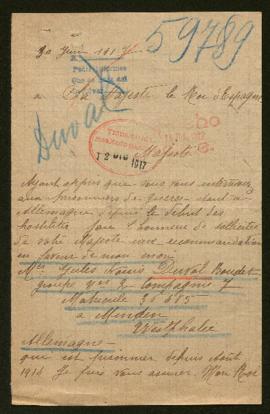 30 Juin 1917
59789
Duval
à Sa Majesté le Roi d'Espagne
12 DIC 1917
Majesté
Ayant appris que vous vous intéressez
aux prisonniers de guerre
Allemagne depuis le début des
hostilités j'ai l'honneur de solliciter
de votre Majesté une recommandation
en faveur de mon mari
Mr Jules Duval Boudet
groupe Nº 2 Compagnie 7
Matricule
à Minden
Westphalie
Allemagne
que est prisonnier depuis Août
1914 Je puis vous assurer Mon Roi